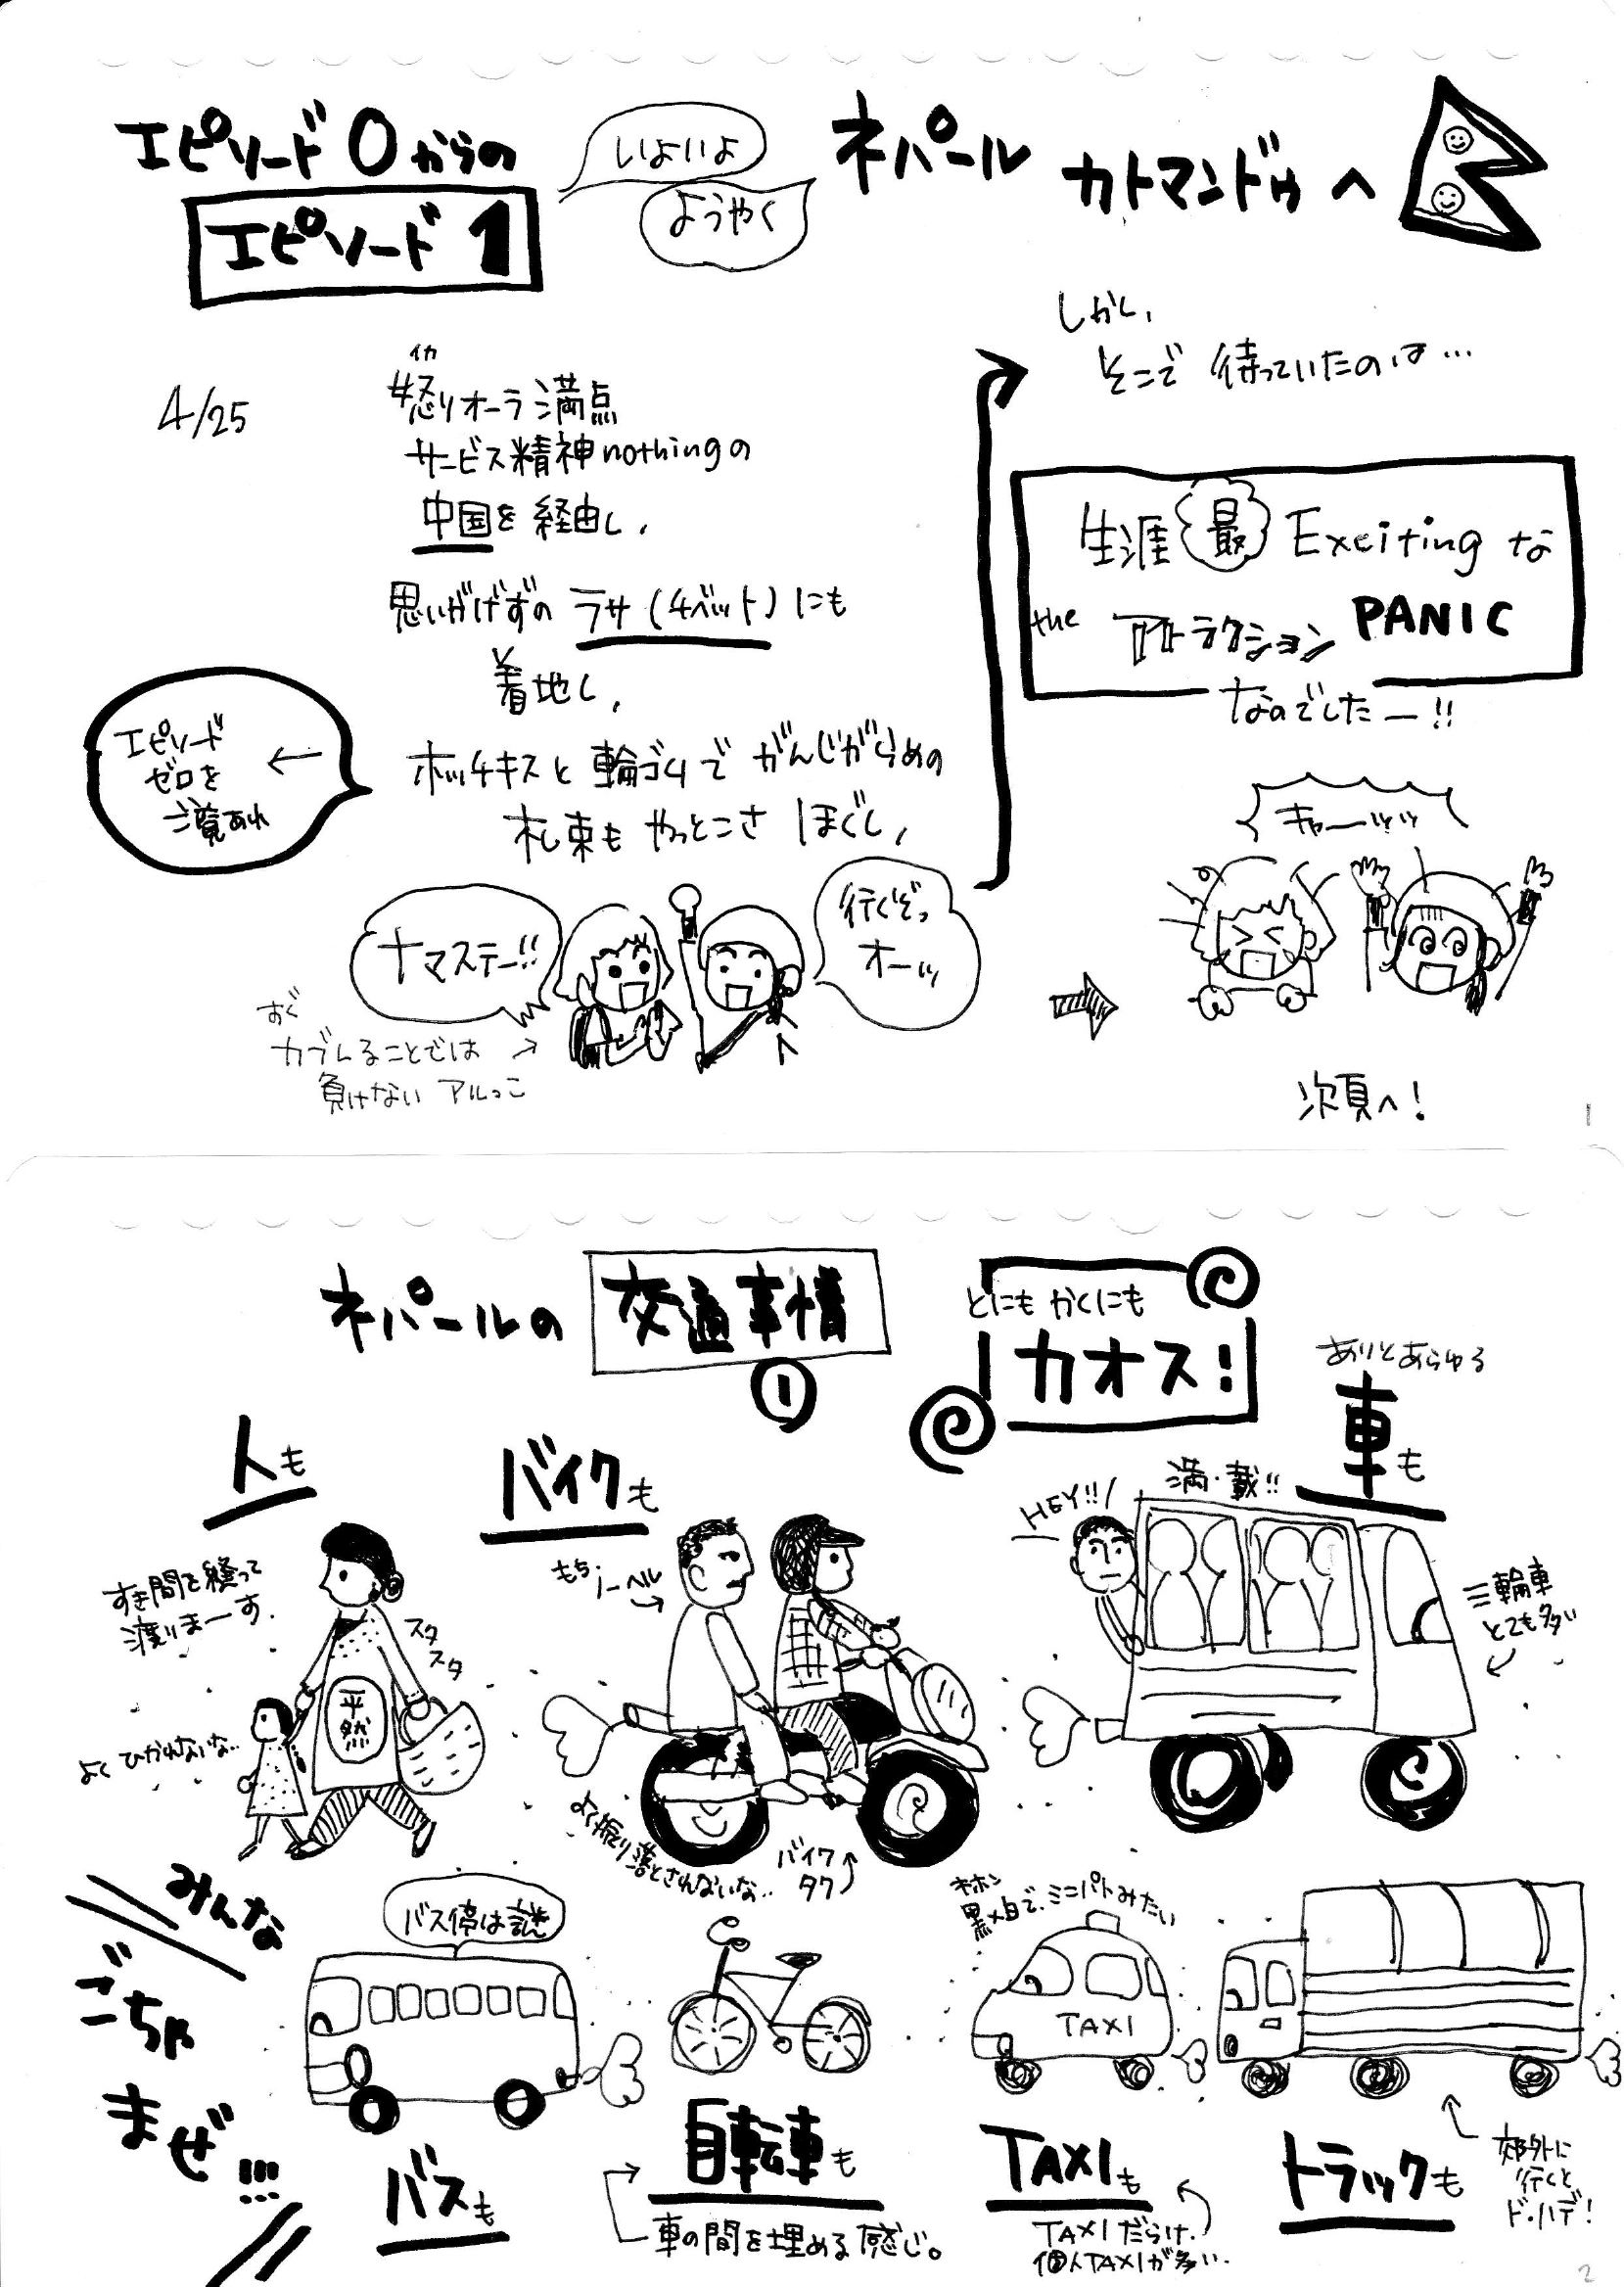 エピソード0からの
エピソード1
いよいよ
ようやく
ネパール カトマンドゥへ
4/25
イカ
怒りオーラ満点
サービス精神nothingの
中国を経由し、
思いがけずの ラサ(チベット)にも
着地し、
ホッチキスと輪ゴムで がんじがらめの
札束も やっとこさ ほぐし、
エピソード
ゼロを
ご覧あれ
←
ナマステー!!
行くぞっ
オーッ
すぐ
カブレることでは
負けない アルっこ
しかし、
そこで 待っていたのは…
生涯 最 Excitingな
the アトラクション PANIC
なのでしたー!!
キャーッッッ
次頁へ!
1
ネパールの 交通事情
①
とにも かくにも
カオス!
人も
すき間を縫って
渡りまーす.
スタ
スタ
平然
よく ひかれないな..
バイクも
もち
ノーヘル
よく振り落とされないな..
バイク
タク
ありとあらゆる
車も
満・載!!
HEY!!
三輪車
とても多い
みんな
ごちゃ
まぜ!!!
バス停は謎
バスも
自転車も
車の間を埋める感じ。
黒×白で、ミニパトみたい
TAXI
TAXIも
TAXIだらけ.
個人TAXIが多い.
トラックも
郊外に
行くと
ド・ハデ!
2